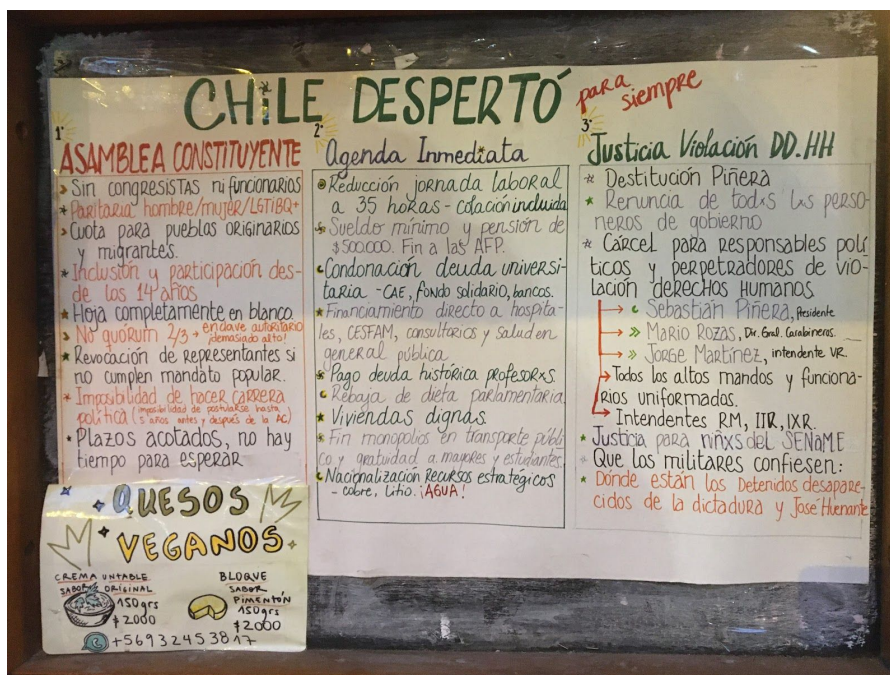 CHiLE DESPERTÓ
para siempre
1º
ASAMBLEA CONSTITUYENTE
Sin congresistas ni funcionarios
Paritaria hombre/mujer/LGTIBQ+
Cuota para pueblos originarios
y migrantes.
Inclusión y participación des-
de los 14 años
Hoja completamente en blanco.
No quórum 2/3 → enclave autoritario
¡demasiado alto!
Revocación de representantes si
no cumplen mandato popular.
Imposibilidad de hacer carrera
política (imposibilidad de postularse hasta
5 años antes y después de la AC)
Plazos acotados, no hay
tiempo para esperar
2º
Agenda Inmediata
Reducción jornada laboral
a 35 horas - colación incluida
Sueldo mínimo y pensión de
$500.000. Fin a las AFP.
Condonación deuda universi-
taria - CAE, fondo solidario, bancos.
Financiamiento directo a hospita-
les, CESFAM, consultorios y salud en
general pública
Pago deuda histórica profesorxs.
Rebaja de dieta parlamentaria
Viviendas dignas.
Fin monopolios en transporte públi-
co y gratuidad a mayores y estudiantes.
Nacionalización Recursos estrategicos
- cobre, litio. ¡AGUA!
3º
Justicia Violación DD.HH
Destitución Piñera
Renuncia de todxs lxs perso-
neros de gobierno
Cárcel para responsables polí
ticos y perpetradores de vio-
lación derechos humanos
Sebastián Piñera, Presidente
Mario Rozas, Dir. Gral. Carabineros.
Jorge Martínez, intendente VR.
Todos los altos mandos y funciona-
rios uniformados.
Intendentes RM, IIR, IXR.
Justicia para niñxs del SENAME
Que los militares confiesen:
Dónde están los Detenidos desapare-
cidos de la dictadura y José Huenante
QUESOS
VEGANOS
CREMA UNTABLE
SABOR ORIGINAL
150grs
$2000
BLOQUE
SABOR
PIMENTÓN
150grs
$2000
+56932453817